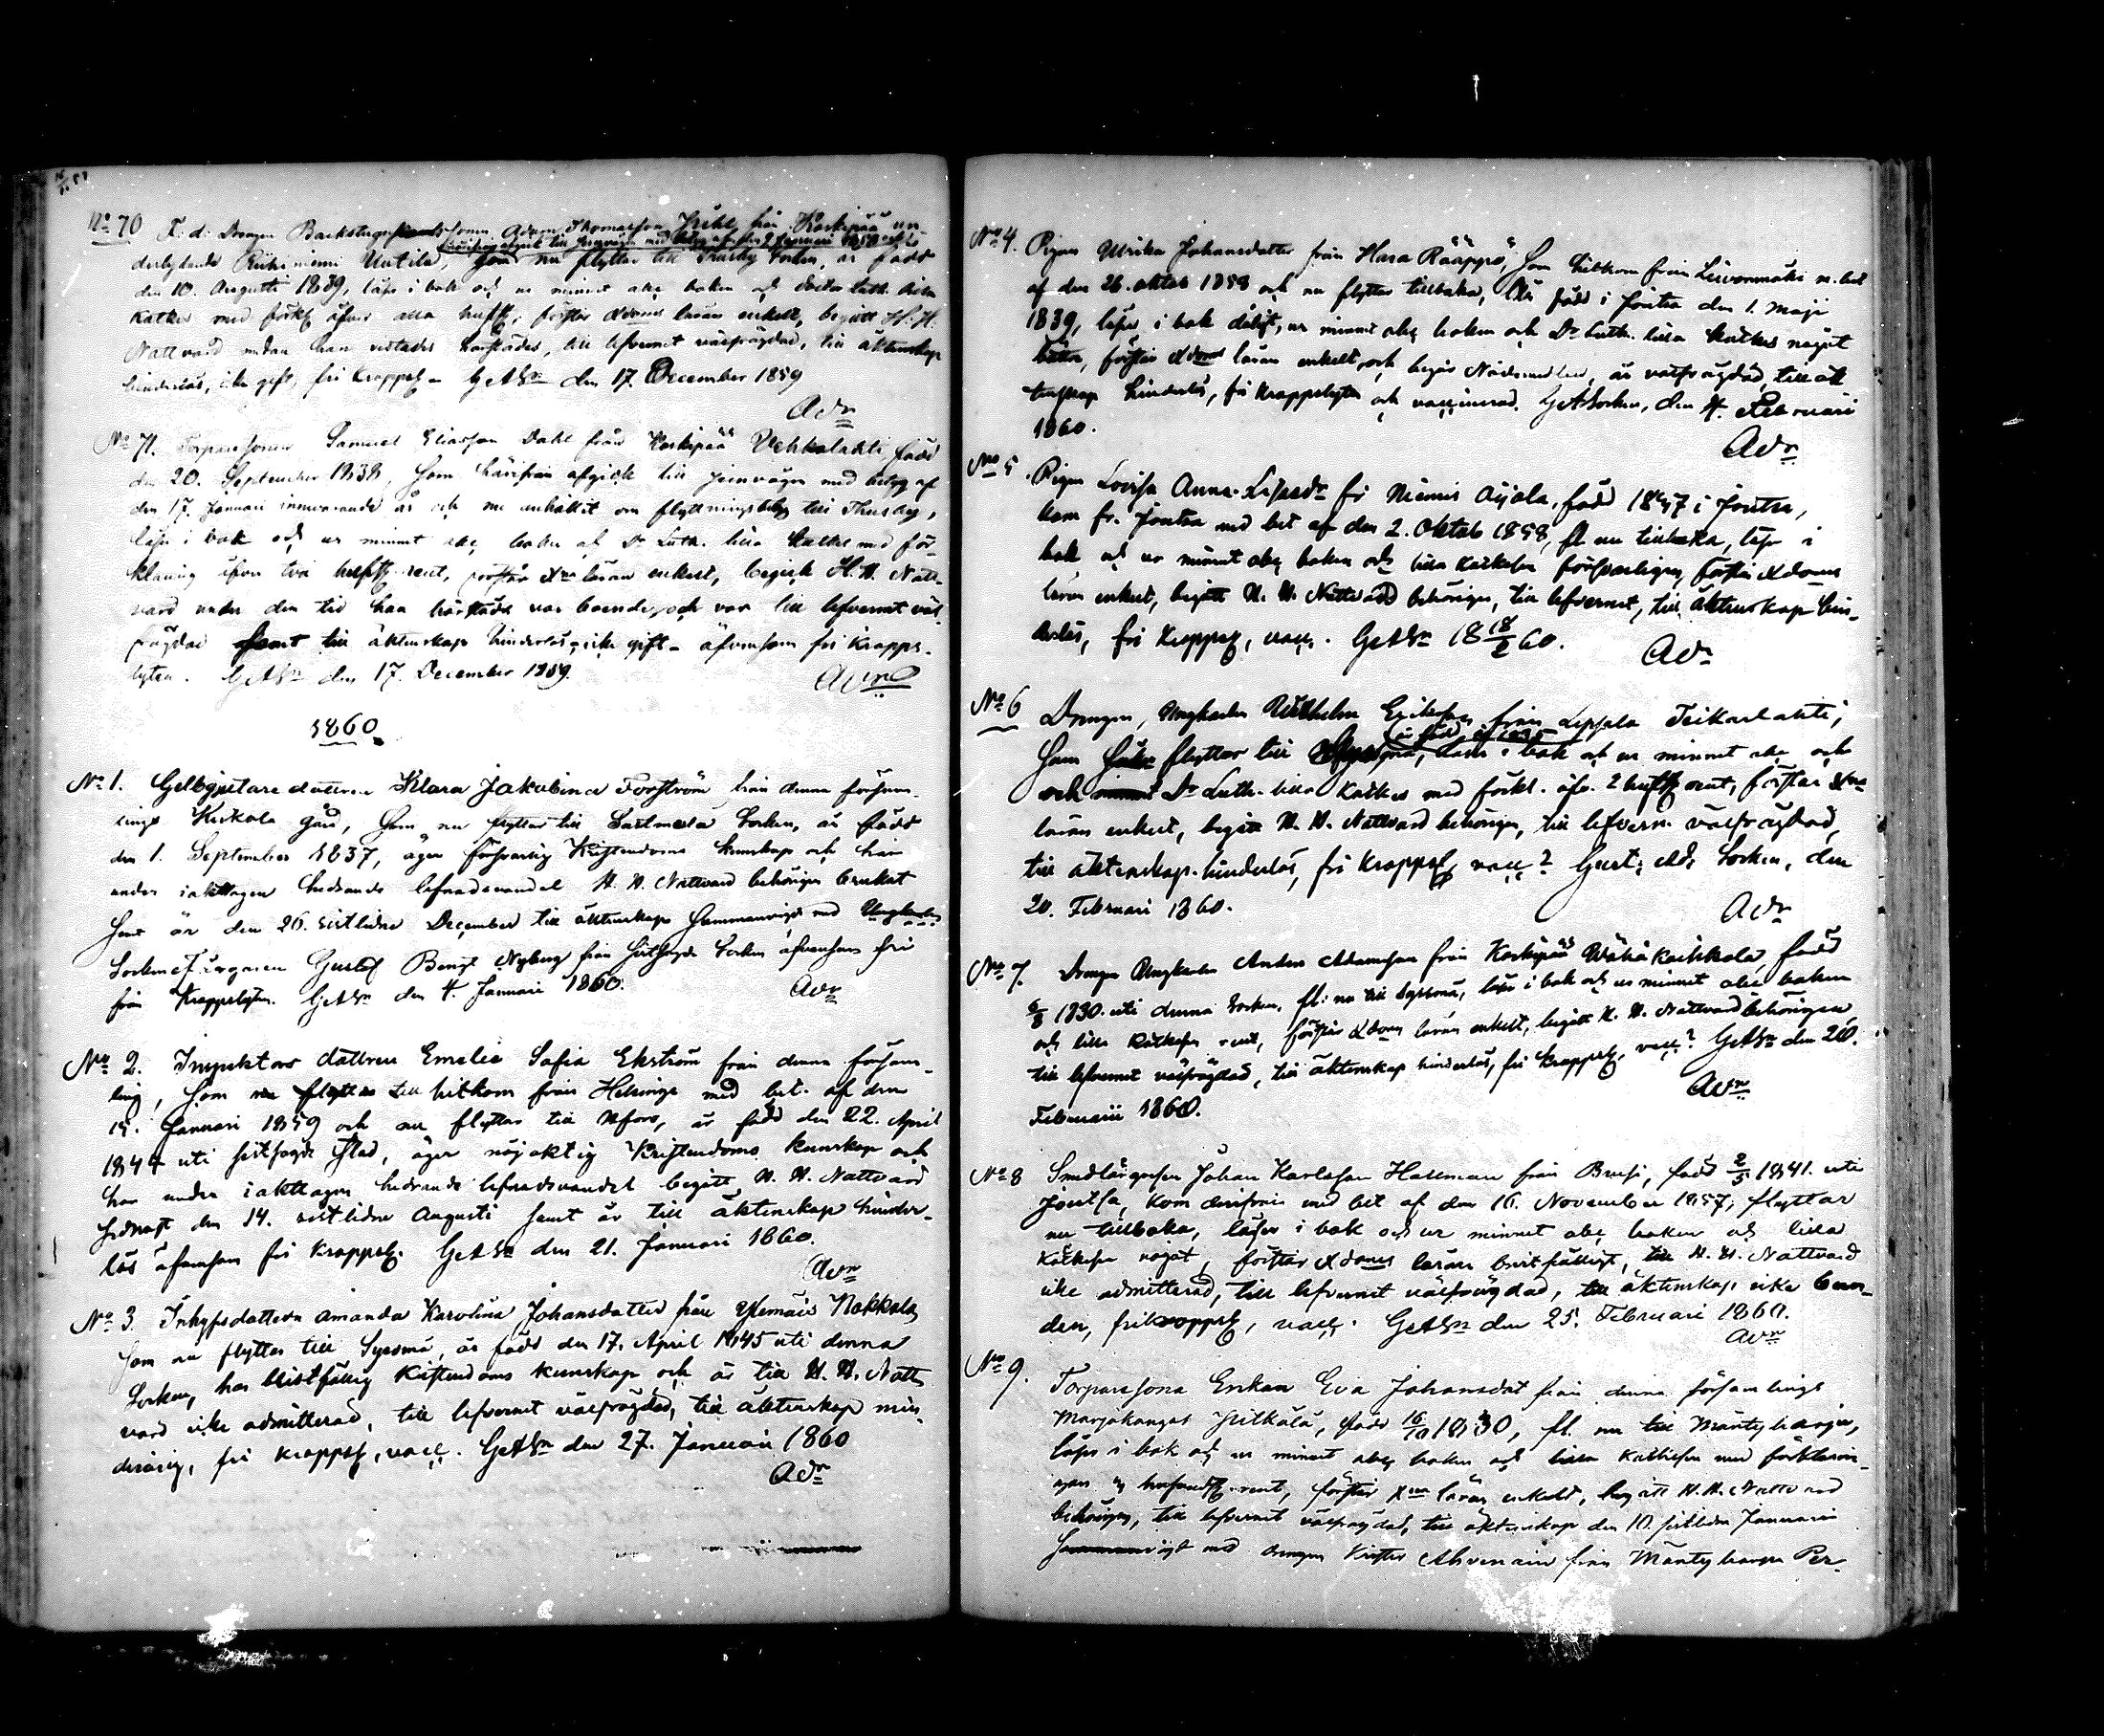 No 70 F. d. Drengen Backstugu sonen Adam Thomasson från Koskipää un-
derlydande Riihiniemi Uutila, som nu flyttar till Socken, är född
den 10. Augusti 1839, läser i bok och ur minnet abc boken och
Katkes med förkl öfver alla hufst, förstår Xdoms läran enkelt, begått H. H.
Nattvard medan han vistades härstädes, till lefvernet välfrägdad, till äktenskap
hinderlös, icke gift, fri kroppsl. GAdSn den 17. December 1859
Adn
No 71. Torparesonen Samuel Eliasson Dahl från Koskipää Vehkalahti, född
den 20. September 1838, som härifrån afgick till Jernvägen med betyg af
den 17. Januari innevarande år och nu anhållit om flyttningsbetyg till Thusby,
läser i bok och ur minnet abc boken och Dr Luth. lilla Katkes med för-
klaring öfver två hufst rent, förstår Xns läran enkelt, begick H. H. Natt-
vard under den tid han härstädes var boende, och var till lefvernet väl-
frägdad samt till äktenskap hinderlös, icke gift, äfvensom fri kropps-
lyten. GAdSn den 17. December 1859.
Adn
1860.
No 1. Gelbgjutare dottren Klara Jakobina Forsström från denna försam-
lings Kirkola gård, som nu flyttar till Sastmola Socken, är född
den 1. September 1837, äger försvarlig Kristendoms kunskap och har
under iakttagen hedrande lefnadsvandel H. H. Nattvard behörigen brukat
samt är den 26. sistlidne December till äktenskap sammanvigd med Ungkarlen
Sockne Färgaren Gustaf Bengt Nyberg från sistsagde Socken äfvensom fri
från Kroppslyten. GAdSn den 4. Januari 1860.
Adn
No 2. Inspektors dottren Emelie Sofia Ekström från denna försam-
ling, som nu flyttar till hitkom från Helsinge med bet. af den
Januari 1859 och nu flyttar till Hfors, är född den 22. April
1844 uti sistsagde Stad, äger nöjaktig Kristendoms kunskap och
har under iakttagen hedrande lefnadsvandel begått H. H. Nattvard
sednast den 14. sistlidne Augusti samt är till äktenskap hinder-
lös äfvensom fri kroppsl. GAdSn den 21. Januari 1860.
Adn
No 3. Inhysdottren Amanda Karolina Johansdotter från Ylemäis Nokkola,
som nu flyttar till Sysmä, är född den 17. April 1845 uti denna
Socken, har bristfällig Kristendoms kunskap och är till H. H. Natt-
vard icke admitterad, till lefvernet välfrägdad, till äktenskap min-
derårig, fri kroppsl, vacc. GAdSn den 27. Januari 1860
Adn
No 4. Pigan Ulrika Johansdotter från Hara Rääppö, som hitkom från Leivonmäki m. bet
af den 26. oktob 1858 och nu flyttar tillbaka, är född i Joutsa den 1. Maji
1839, läser i bok dåligt, ur minnet abc boken och Dr Luth. lilla Katkes något
bättre, förstår Xdoms läran enkelt, och begår Nådemedlen, är välfrägdad, till äk-
tenskap hinderlös, fri kroppslyten och vaccinerad. GAdSocken, den 4. Februari
1860.
Adn
No 5. Pigan Lovisa Anna Lisasdr fr Niemis Aijala, född 1837 i Joutsa,
kom fr. Joutsa med bet af den 2. Oktob 1858, fl nu tillbaka, läser i
bok och ur minnet abc boken och lilla Katkesen försvarligen, förstår Xdoms
läran enkelt, begått H. H. Nattvard behörigen, till lefvernet, till äktenskap hin-
derlös, fri kroppsl, vacc. GAdSn 18 18/2 60.
Adn
No 6 Drengen, Ungkarlen Wilhelm Eriksson från Lepsala Teikarlahti,
som flyttar till läser i bok och ur minnet abc och
Dr Luth. lilla Katkes med förkl. öfv. 2 hufst rent, förstår Xns
läran enkelt, begått H. H. Nattvard behörigen, till lefvern. välfrägdad,
till äktenskap hinderlös, fri kroppsl, vacc? Gust: Ad: Socken, den
20. Februari 1860.
Adn
No 7. Drengen Ungkarlen Anders Adamsson från Koskipää Wähä Kaihkola, född
6/8 1830 uti denna Socken, fl: nu till Sysmä, läser i bok och ur minnet abc boken
och lilla Katkesen rent, förstår Xdoms läran enkelt, begått H. H. Nattvard behörigen,
till lefvernet välfrägdad, till äktenskap hinderlös, fri kroppsl, vacc? GAdSn den 20.
Februarii 1860.
Adn
No 8 Smedlärgossen Johan Karlsson Hallman från Brusi, född 2/5 1841 uti
Joutsa, kom derifrån med bet af den 16. November 1857, flyttar
nu tillbaka, läser i bok och ur minnet abc boken och lilla
Katkesen något, förstår Xdoms läran bristfälligt, till H. H. Nattvard
icke admitterad, till lefvernet välfrägdad, till äktenskap icke bun-
den, fri kroppsl, vacc. GAdSn den 25. Februari 1860.
Adn
No 9. Torparesona Enkan Eva Johansdot från denna församlings
Marjokangas född 16/10 1830, fl. nu till Mäntyharju,
läser i bok och ur minnet abc boken och lilla Kathesen med förklarin-
gen rent, förstår Xna läran enkelt, begått H. H. Nattvard
behörigen, till lefvernet välfrägdad, till äktenskap den 10. sistlidne Januarii
Sammanvigd med drengen Krister Ahvenain från Mäntyharju Per-